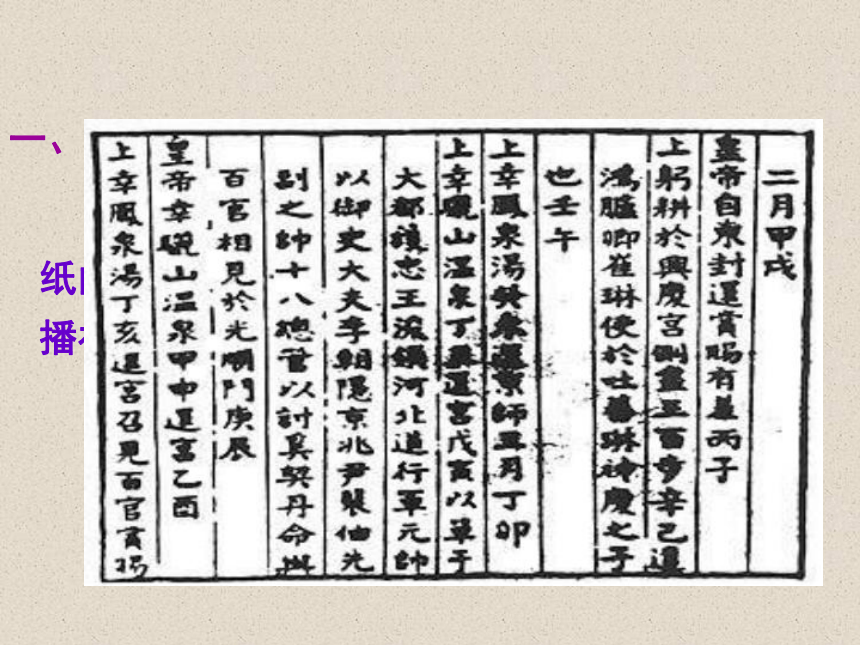 一、
纸
播
二月甲戌
皇帝自東封還賞賜有差丙子
上躬耕於興慶宮側盡三百步辛巳還
鴻臚卿崔琳使於吐蕃琳神慶之子
也壬午
上幸鳳泉湯癸未還京師五月丁卯
上幸驪山溫泉丁還宮戊寅以單于
大都護忠王浚領河北道行軍元帥
以御史大夫李朝隱京兆尹裴伷先
副之帥十八總管以討奚契丹命與
百官相見於光順門庚辰
皇帝幸驪山溫泉甲申還宮乙酉
上幸鳳泉湯丁亥還宮召見百官賞賜